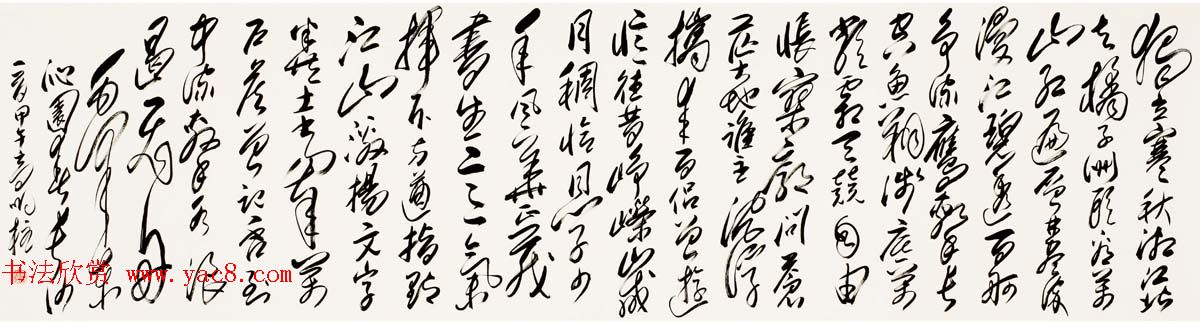 独立寒秋湘江北
去橘子洲头看万
山红遍层林尽染
漫江碧透百舸
争流鹰击长
空鱼翔浅底万
类霜天竞自由
怅寥廓问苍
茫大地谁主沉浮
携来百侣曾游
忆往昔峥嵘岁
月稠恰同学少
年风华正茂
书生意气
挥斥方遒指点
江山激扬文字
粪土当年万
户侯曾记否到
中流击水浪
遏飞舟
沁园春长沙
甲午
书法欣赏
www.yac8.com